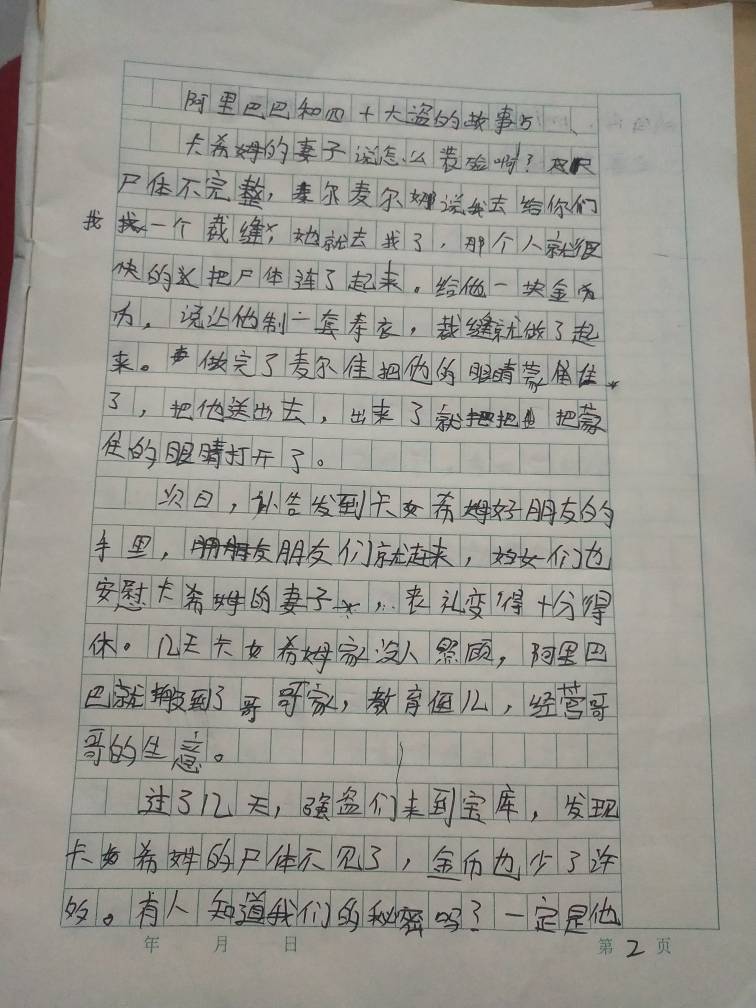 阿里巴巴和四十大盗的故事5
卡希姆的妻子说怎么装殓啊？
尸体不完整，麦尔麦尔娜说我去给你们
找一个裁缝，她就去找了，那个人就很
快的把尸体连了起来。给他一块金币
为，说让他制一套寿衣，裁缝就做了起
来。做完了麦尔佳把他的眼睛蒙住
了，把他送出去，出来了就把蒙
住的眼睛打开了。
次日，讣告发到卡希姆好朋友的
手里，朋友们就赶来，妇女们也
安慰卡希姆的妻子，丧礼变得十分得
体。几天卡希姆家没人照顾，阿里巴
巴就搬到了哥哥家，教育侄儿，经营哥
哥的生意。
过了几天，强盗们来到宝库，发现
卡希姆的尸体不见了，金币也少了许
多。有人知道我们的秘密吗？一定是他
年 月 日
第2页